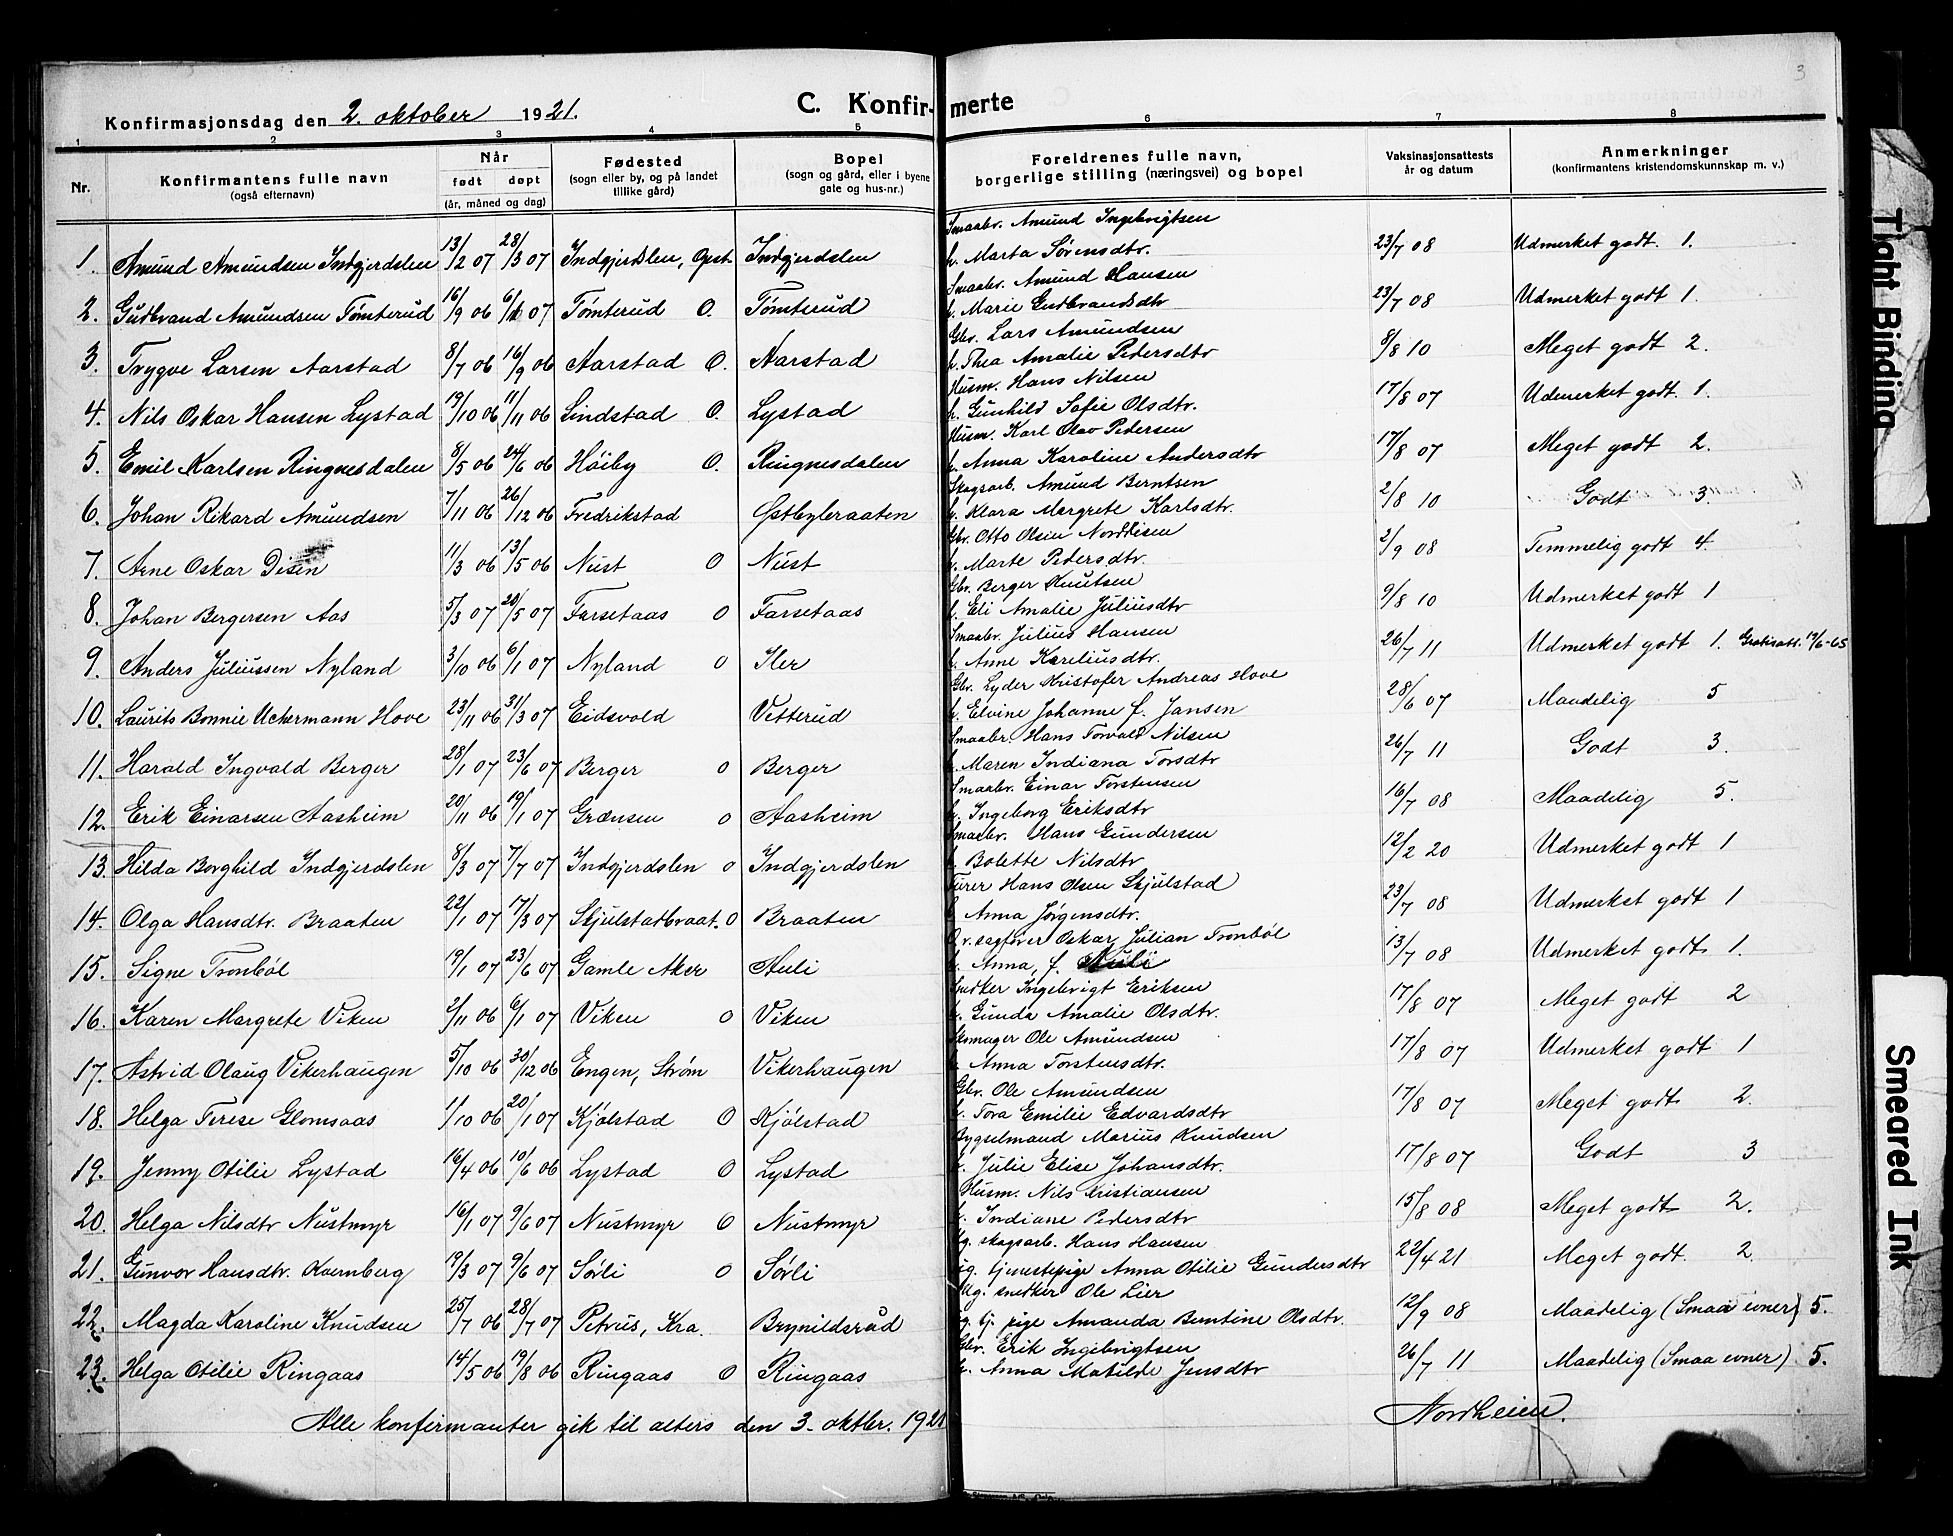 3
C. Konfirmerte
Konfirmasjonsdag den 2. oktober 1921.
1 2 3 4 5 6 7 8
Nr. Konfirmantens fulle navn (også efternavn) Når født døpt (år, måned og dag) Fødested (sogn eller by, og på landet tillike gård) Bopel (sogn og gård, eller i byene gate og hus-nr.) Foreldrenes fulle navn, borgerlige stilling (næringsvei) og bopel Vaksinasjonsattests år og datum Anmerkninger (konfirmantens kristendomskunnskap m. v.)
Smaabr. Amund Ingebrigtsen
1. Amund Amundsen Indgjerdslen 13/2 07 28/3 07 Indgjerdslen, Opst. Indgjerdslen h. Marta Sørensdtr. 23/7 08 Udmerket godt 1.
Smaabr. Amund Hansen
2. Gudbrand Amundsen Tømterud 16/9 06 6/1 07 Tømterud O. Tømterud h. Marie Gudbrandsdtr 23/7 08 Udmerket godt 1.
Gbr. Lars Amundsen
3. Trygve Larsen Aarstad 8/7 06 16/9 06 Aarstad O. Aarstad h. Thea Amalie Pedersdtr 8/8 10 Meget godt 2.
Husm. Hans Nilsen
4. Nils Oskar Hansen Lystad 19/10 06 11/11 06 Lindstad O. Lystad h. Gunhild Sofie Olsdtr. 17/8 07 Udmerket godt 1.
Husm. Karl Olav Pedersen
5. Emil Karlsen Ringnesdalen 8/5 06 24/6 06 Høiby O. Ringnesdalen h. Anna Karoline Andersdtr 17/8 07 Meget godt 2.
Skogsarb. Amund Berntsen
6. Johan Rikard Amundsen 7/11 06 26/12 06 Fredrikstad Østbybraaten h. Klara Margrete Karlsdtr. 2/8 10 Godt 3
Gbr. Otto Olsen Nordbisen
7. Arne Oskar Disen 11/3 06 13/5 06 Nust O Nust h. Marte Pedersdtr. 2/9 08 Temmelig godt 4.
Gbr. Berger Knutsen
8. Johan Bergersen Aas 5/3 07 20/5 07 Farsetaas O Farsetaas h. Eli Amalie Juliusdtr 9/8 10 Udmerket godt 1
Smaabr. Julius Hansen
9. Anders Juliussen Nyland 3/10 06 6/1 07 Nyland O Iler h. Anne Kareliusdtr. 26/7 11 Udmerket godt 1. Gratisatt. 19/6-65
Gbr. Lyder Kristofer Andreas Hove
10. Laurits Bonnie Uchermann Hove 23/11 06 31/3 07 Eidsvold Vetterud h. Elvine Johanne f. Jansen 28/6 07 Maadelig 5
Smaabr. Hans Torvald Nilsen
11. Harald Ingvald Berger 28/1 07 23/6 07 Berger O Berger h. Maren Indiana Torsdtr 26/7 11 Godt 3.
Smaabr. Einar Torstensen
12. Erik Einarsen Aasheim 20/11 06 19/1 07 Grænsen O Aasheim h. Ingeborg Eriksdtr 16/7 08 Maadelig 5.
Smaabr. Hans Gundersen
13. Hilda Borghild Indgjerdslen 8/3 07 7/7 07 Indgjerdslen O Indgjerdslen h. Bolette Nilsdtr 12/2 20 Udmerket godt 1
Furer Hans Olsen Skjulstad
14. Olga Hansdtr. Braaten 22/1 07 17/3 07 Skjulstadbraat. O Braaten h. Anna Jørgensdtr. 23/7 08 Udmerket godt 1
O.r.sagfører Oskar Julian Tronbøl
15. Signe Tronbøl 19/1 07 23/6 07 Gamle Aker Auli h. Anna, f. Auli 13/7 08 Udmerket godt 1.
Snedker Ingebrigt Eriksen
16. Karen Margrete Viken 2/11 06 6/1 07 Viken O Viken h. Gunda Amalie Olsdtr. 17/8 07 Meget godt 2
Skomager Ole Amundsen
17. Astrid Olaug Vikerhaugen 5/10 06 30/12 06 Engen, Strøm Vikerhaugen h. Anna Torstensdtr. 17/8 07 Udmerket godt 1
Gbr. Ole Amundsen
18. Helga Terese Glomsaas 1/10 06 20/1 07 Kjølstad O Kjølstad h. Tora Emilie Edvardsdtr 17/8 07 Meget godt 2.
Bygselmand Marius Knudsen
19. Jenny Otilie Lystad 16/4 06 10/6 06 Lystad O Lystad h. Julie Elise Johansdtr. 17/8 07 Godt 3
Husm. Nils Kristiansen
20. Helga Nilsdtr Nustmyr 16/1 07 9/6 07 Nustmyr O Nustmyr h. Indiane Pedersdtr 15/8 08 Meget godt 2.
Ug. skogsarb. Hans Hansen
21. Gunvor Hansdtr. Kvernberg 19/3 07 9/6 07 Sørli O Sørli ug. tjenestepige Anna Otilie Gundersdtr 22/4 21 Meget godt. 2
Ug. snedker Ole Lier
22. Magda Karoline Knudsen 25/7 06 28/7 07 Petrus, Kra. Brynildsrud ug. tj. pige Amanda Berntine Olsdtr. 12/9 08 Maadelig (Smaa evner) 5.
Gbr. Erik Ingebrigtsen
23. Helga Otilie Ringaas 14/5 06 19/8 06 Ringaas O Ringaas h. Anna Matilde Jensdtr 26/7 11 Maadelig (Smaa evner) 5.
Alle konfirmanter gik til alters den 3. oktbr. 1921
Nordheim.
Tight Binding
Smeared Ink